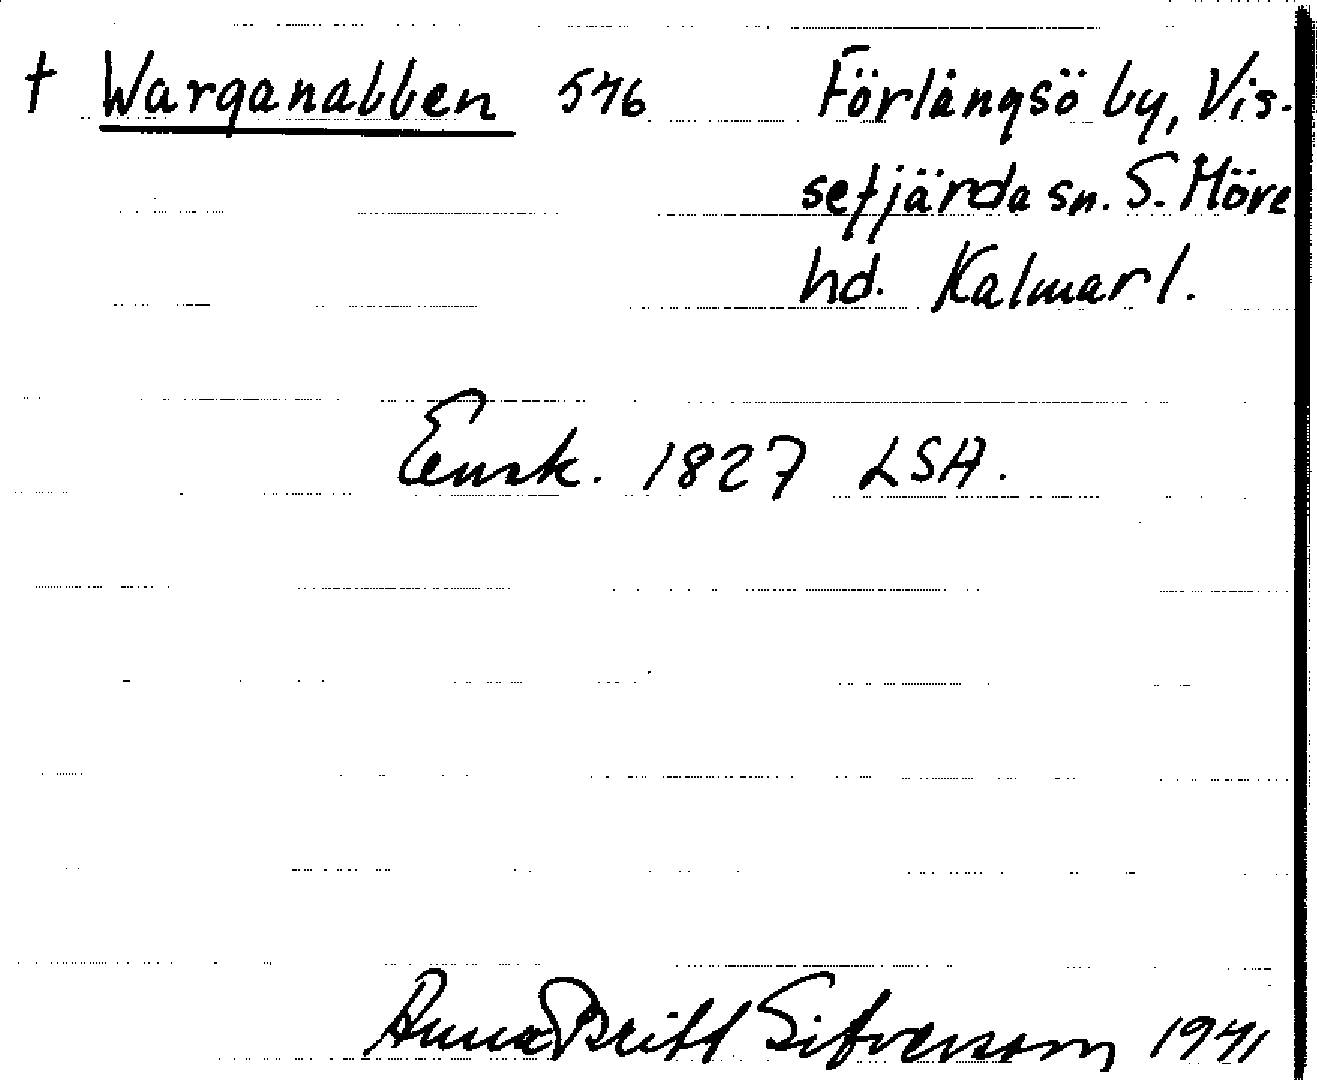 † Warganabben 546 Förlångsö by, Vis-
sefjärda sn. S. Möre
hd. Kalmar l.
Ensk. 1827 LSA.
Anna Britt Sifversson 1941